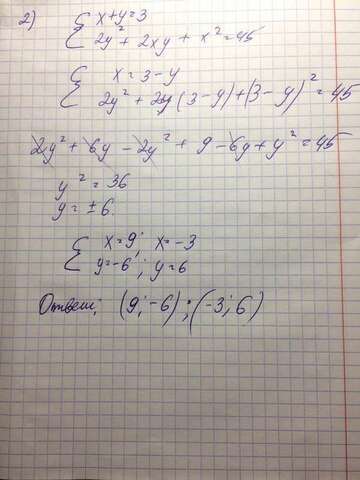 2) { x+y=3
2y² + 2xy + x² = 45
{ x = 3-y
2y² + 2y(3-y)+(3-y)² = 45
2y² + 6y - 2y² + 9 - 6y + y² = 45
y² = 36
y = ±6.
{ x=9; x=-3
y=-6; y=6
Ответ: (9;-6);(-3;6)